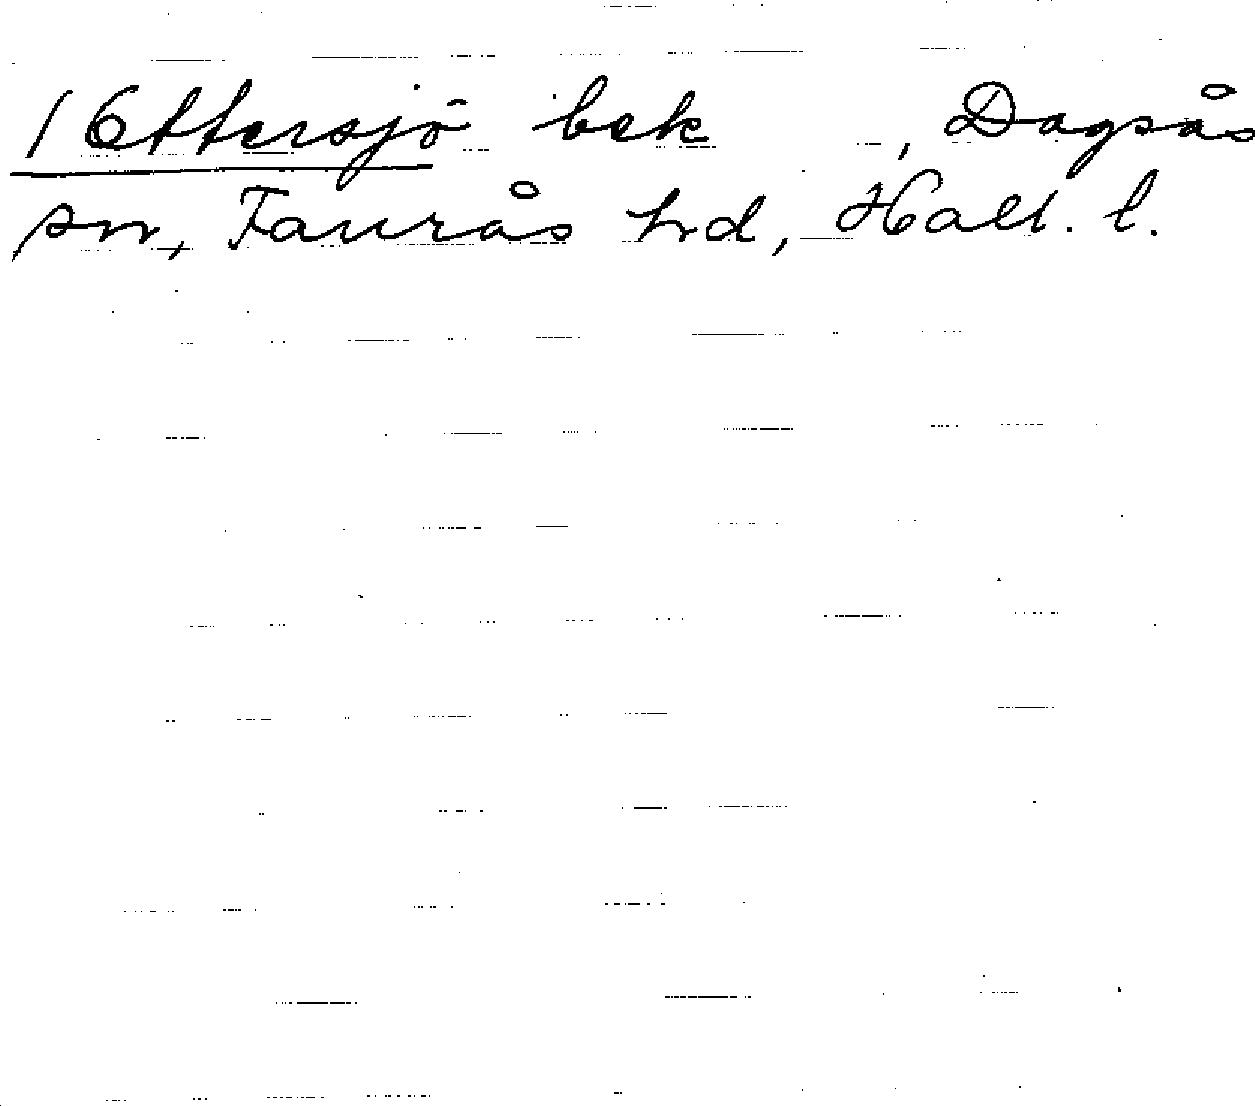 1 Ottersjö bek , Dagsås
sn, Faurås hd, Hall. l.